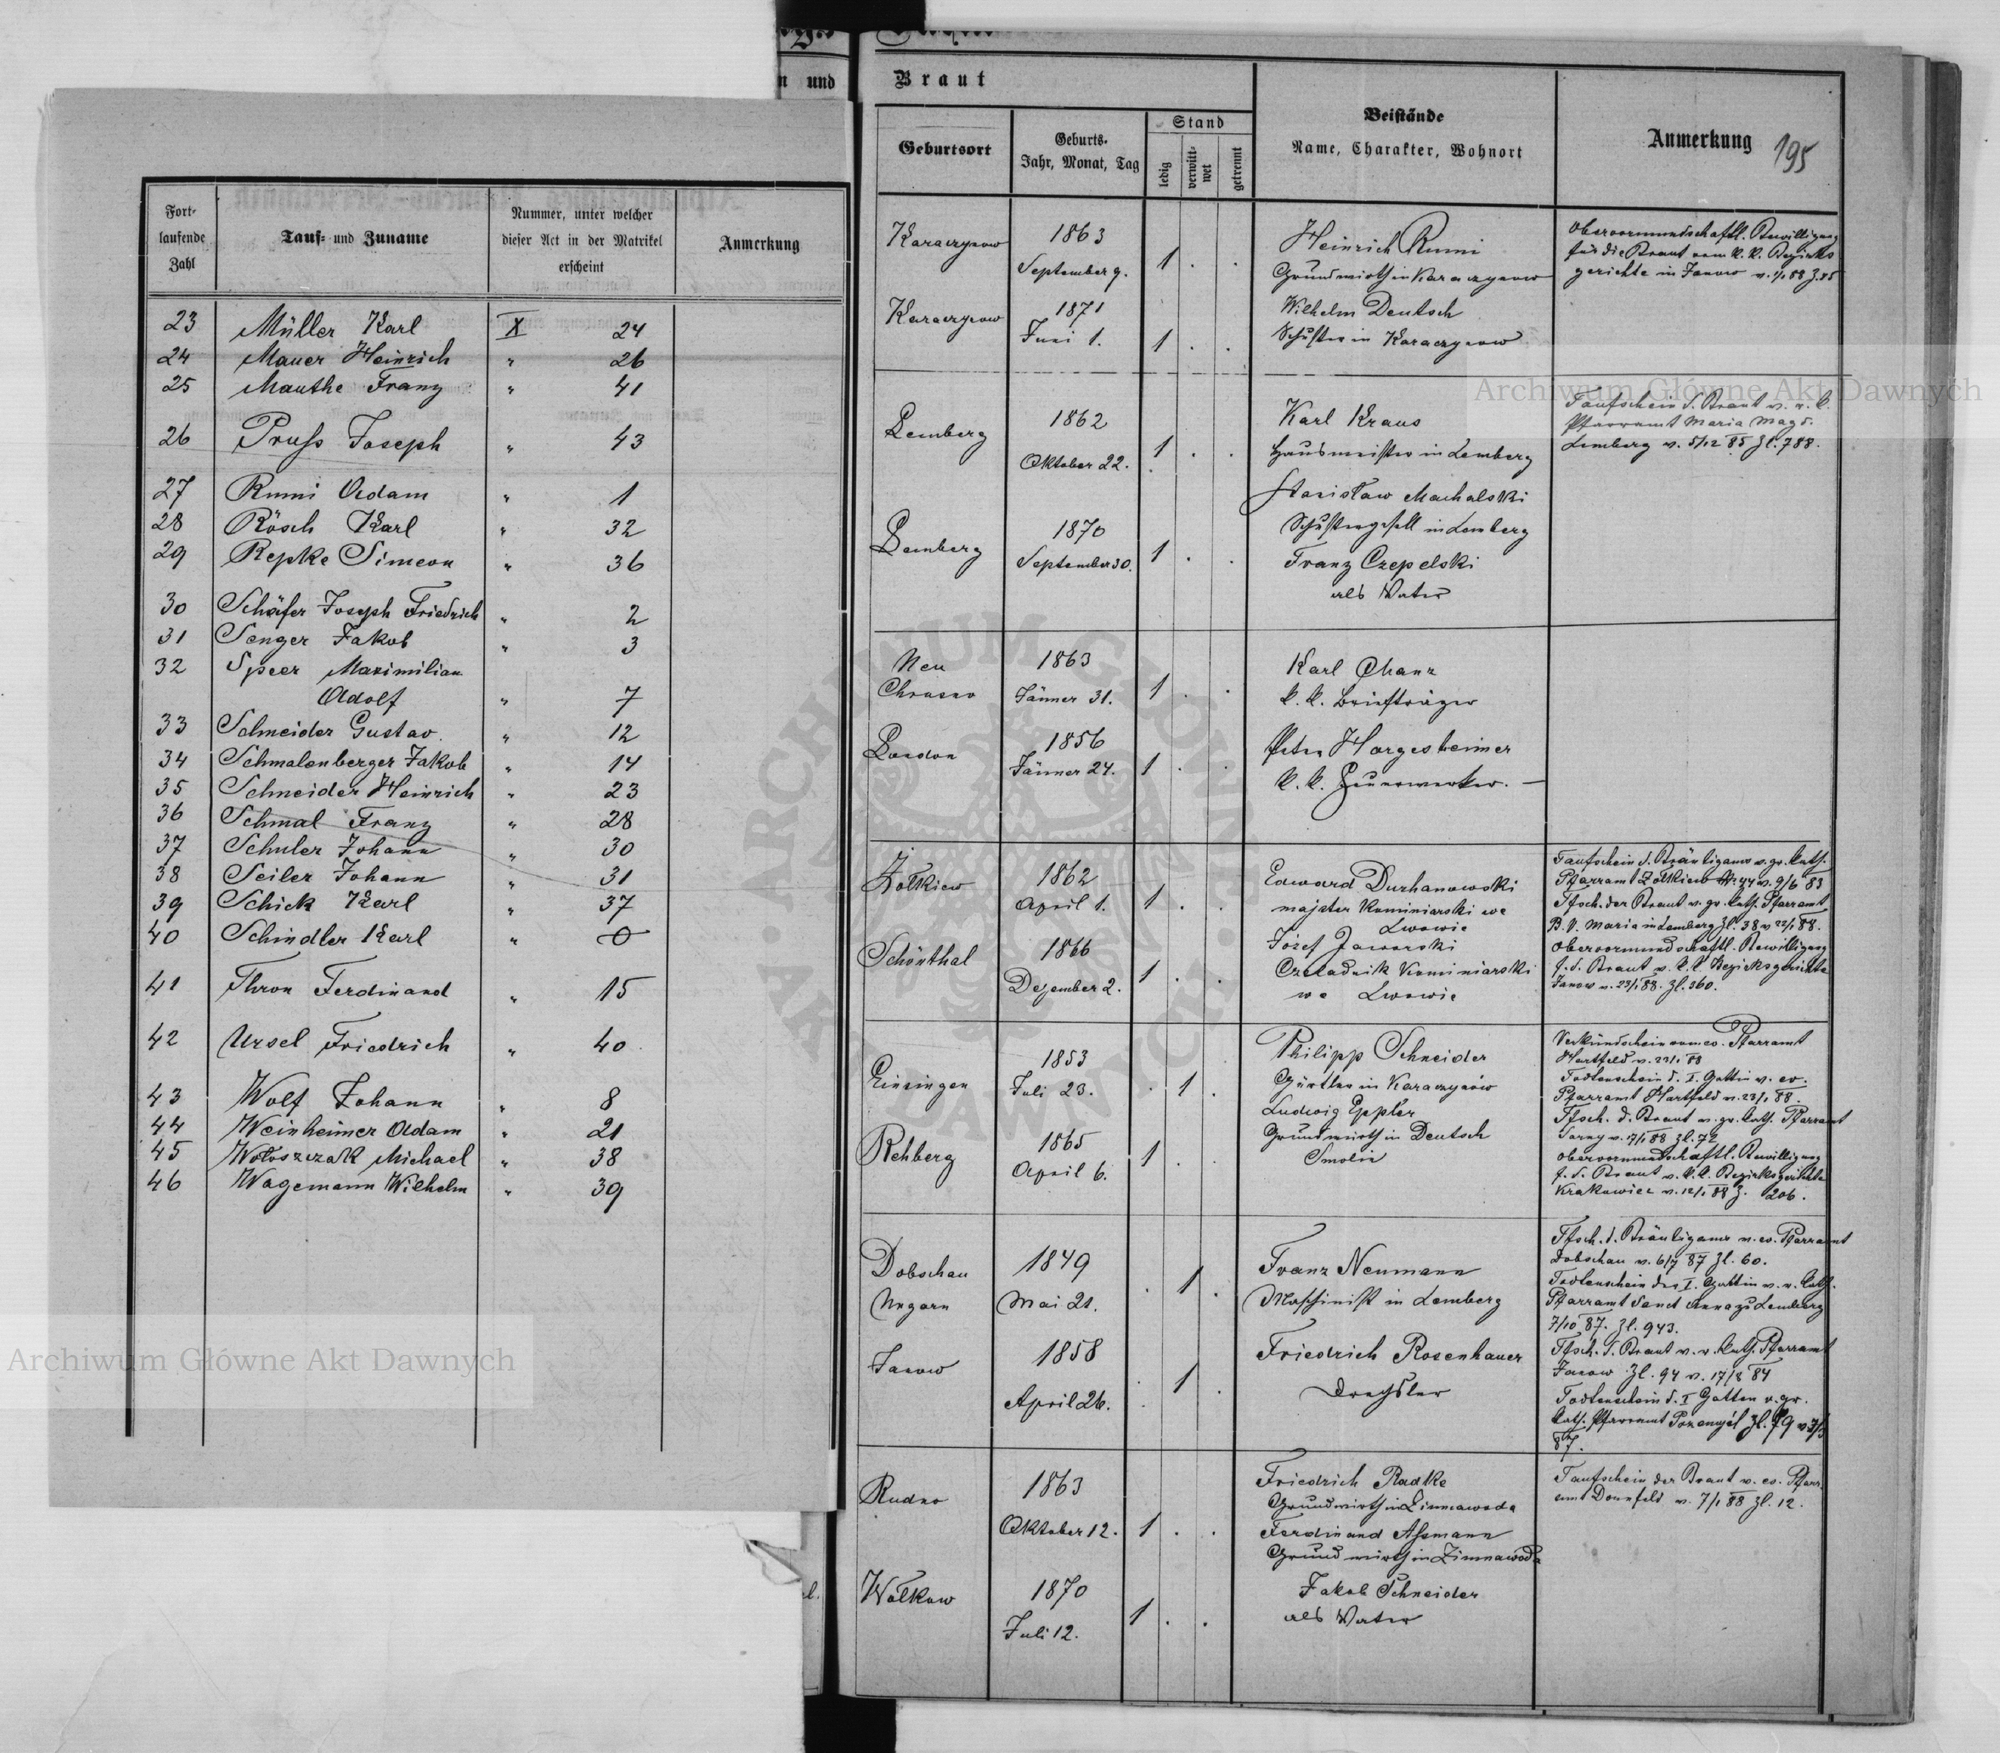 Fort-
laufende
Zahl
Tauf- und Zuname
Nummer, unter welcher
dieser Act in der Matrikel
erscheint
Anmerkung
23 Müller Karl X 24
24 Mauer Heinrich " 26
25 Mauthe Franz " 41
26 Pruss Joseph " 43
27 Rumi Adam " 1
28 Rösch Karl " 32
29 Repke Simeon " 36
30 Schäfer Joseph Friedrich " 2
31 Senger Jakob " 3
32 Speer Maximilian
Adolf " 7
33 Schneider Gustav " 12
34 Schmalenberger Jakob " 14
35 Schneider Heinrich " 23
36 Schmal Franz " 28
37 Schuler Johann " 30
38 Seiler Johann " 31
39 Schick Karl " 37
40 Schindler Karl " 0
41 Thron Ferdinand " 15
42 Ursel Friedrich " 40
43 Wolf Johann " 8
44 Weinheimer Adam " 21
45 Wołoszczak Michael " 38
46 Wagemann Wilhelm " 39
n und
Braut
Geburtsort
Geburts-
Jahr, Monat, Tag
Stand
ledig
verwitt-
wet
getrennt
Beistände
Name, Charakter, Wohnort
Anmerkung 195
Karaczynow
1863
September 9.
1 . .
Heinrich Rumi
Grundwirth in Karaczynow
Obervormundschaftl. Bewilligung
für die Braut vom k. k. Bezirks
gerichte in Janow
Karaczynow
1871
Juni 1.
1 . .
Wilhelm Deutsch
Schuster in Karaczynow
Lemberg
1862
Oktober 22.
1 . .
Karl Kraus
Hausmeister in Lemberg
Taufschein d. Braut v. r. k.
Pfarramt Maria Magd.
Lemberg v. 5/12 85 Zl. 788.
Lemberg
1870
September 30.
1 . .
Stanisław Machalski
Schustergesell in Lemberg
Franz Czepelski
als Vater
Neu
Chrusno
1863
Jänner 31.
1 . .
Karl Chanz
k. k. Briefträger
London
1856
Jänner 24.
1 . .
Peter Hargesheimer
k. k. Feuerwerker. —
Żołkiew
1862
April 1.
1 . .
Edward Durhanowski
majster kominiarski we
Lwowie
Taufschein d. Bräutigams v. gr. kath.
Pfarramt Żołkiew Nr. 44 v. 9/6 83
Tfsch. der Braut v. gr. kath. Pfarramt
B. V. Maria in Lemberg Zl. 38 v. 22/1 88.
Schönthal
1866
Dezember 2.
1 . .
Józef Jaworski
Czeladnik kominiarski
we Lwowie
Obervormundschaftl. Bewilligung
f. d. Braut v. k. k. Bezirksgerichte
Janow v. 23/1 88. Zl. 360.
Einsingen
1853
Juli 23.
. 1 .
Philipp Schneider
Gürtler in Karaczynów
Verkündschein vom ev. Pfarramt
Hartfeld v. 23/1 88
Todtenschein d. I. Gattin v. ev.
Pfarramt Hartfeld v. 23/1 88.
Rehberg
1865
April 6.
1 . .
Ludwig Eppler
Grundwirth in Deutsch
Smolin
Tfsch. d. Braut v. gr. kath. Pfarramt
Sarny v. 17/1 88 Zl. 72
Obervormundschaftl. Bewilligung
f. d. Braut v. k. k. Bezirksgerichte
Krakowiec v. 12/1 88 Z. 206.
Dobschau
Ungarn
1849
Mai 21.
. 1 .
Franz Neumann
Maschinist in Lemberg
Tfsch. d. Bräutigams v. ev. Pfarramt
Dobschau v. 6/7 87 Zl. 60.
Todtenschein der I. Gattin v. r. kath.
Pfarramt Sanct Anna zu Lemberg
7/10 87. Zl. 943.
Janow
1858
April 26.
. 1 .
Friedrich Rosenhauer
Drechsler
Tfsch. d. Braut v. r. kath. Pfarramt
Janow Zl. 94 v. 17/8 84
Todtenschein d. I Gatten v. gr.
kath. Pfarramt
87.
Rudno
1863
Oktober 12.
1 . .
Friedrich Radke
Grundwirth in Zimnawoda
Ferdinand Assmann
Grundwirth in Zimnawoda
Taufschein der Braut v. ev. Pfarr-
amt Dornfeld v. 7/1 88 Zl. 12.
Wolkow
1870
Juli 12.
1 . .
Jakob Schneider
als Vater
Archiwum Główne Akt Dawnych
Archiwum Główne Akt Dawnych
ARCHIWUM GŁÓWNE AKT DAWNYCH